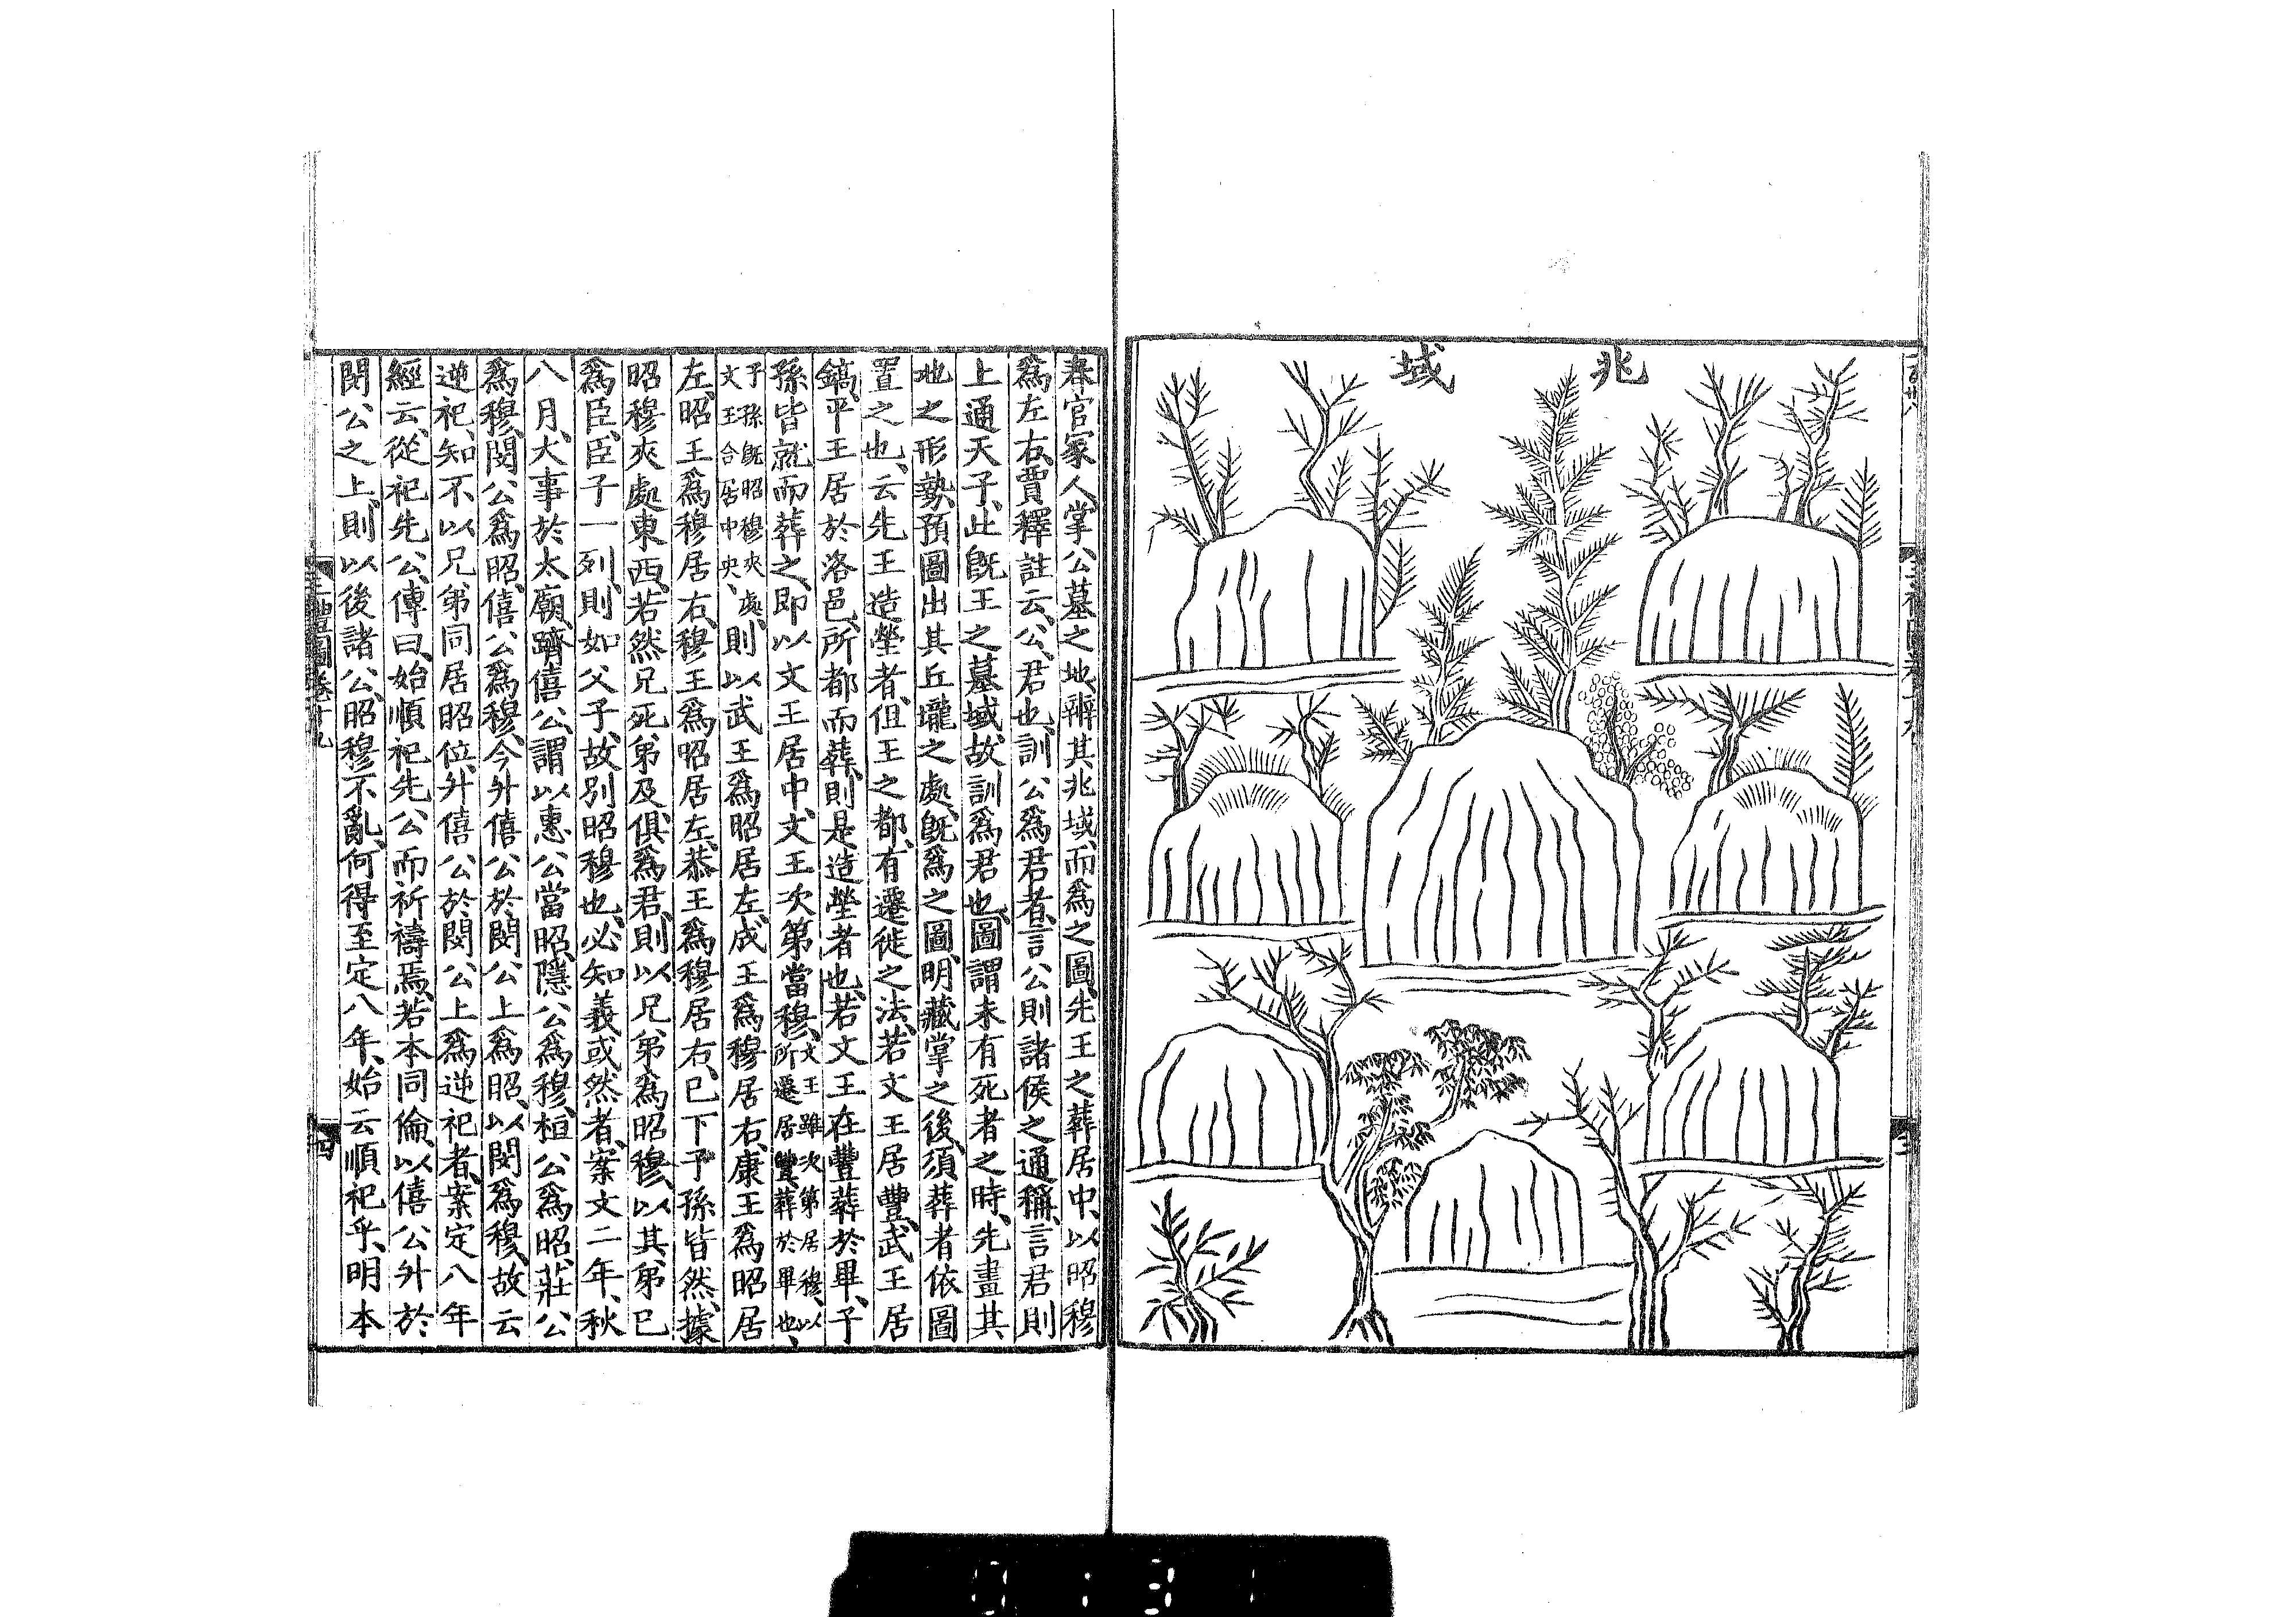 兆域
春官冢人掌公墓之地辨其兆域而爲之圖先王之葬居中以昭穆
爲左右賈釋註云公君也訓公爲君者言公則諸侯之通稱言君則
上通天子此旣王之墓域故訓爲君也圖謂未有死者之時先畫其
地之形勢預圖出其丘壠之處旣爲之圖明藏掌之後須葬者依圖
置之也云先王造塋者但王之都有遷徙之法若文王居豐武王居
鎬平王居於洛邑所都而葬則是造塋者也若文王在豐葬於畢子
孫皆就而葬之即以文王居中文王次第當穆文王雖次第居穆以所遷居豐葬於畢也
子孫旣昭穆夾處文王合居中央則以武王爲昭居左成王爲穆居右康王爲昭居
左昭王爲穆居右穆王爲昭居左恭王爲穆居右已下子孫皆然據
昭穆夾處東西若然兄死弟及俱爲君則以兄弟爲昭穆以其弟已
爲臣臣子一列則如父子故別昭穆也必知義或然者案文二年秋
八月大事於太廟躋僖公謂以惠公當昭隱公爲穆桓公爲昭莊公
爲穆閔公爲昭僖公爲穆今升僖公於閔公上爲昭以閔爲穆故云
逆祀知不以兄弟同居昭位升僖公於閔公上爲逆祀者案定八年
經云從祀先公傳曰始順祀先公而祈禱焉若本同倫以僖公升於
閔公之上則以後諸公昭穆不亂何得至定八年始云順祀乎明本
三禮圖卷十九
四